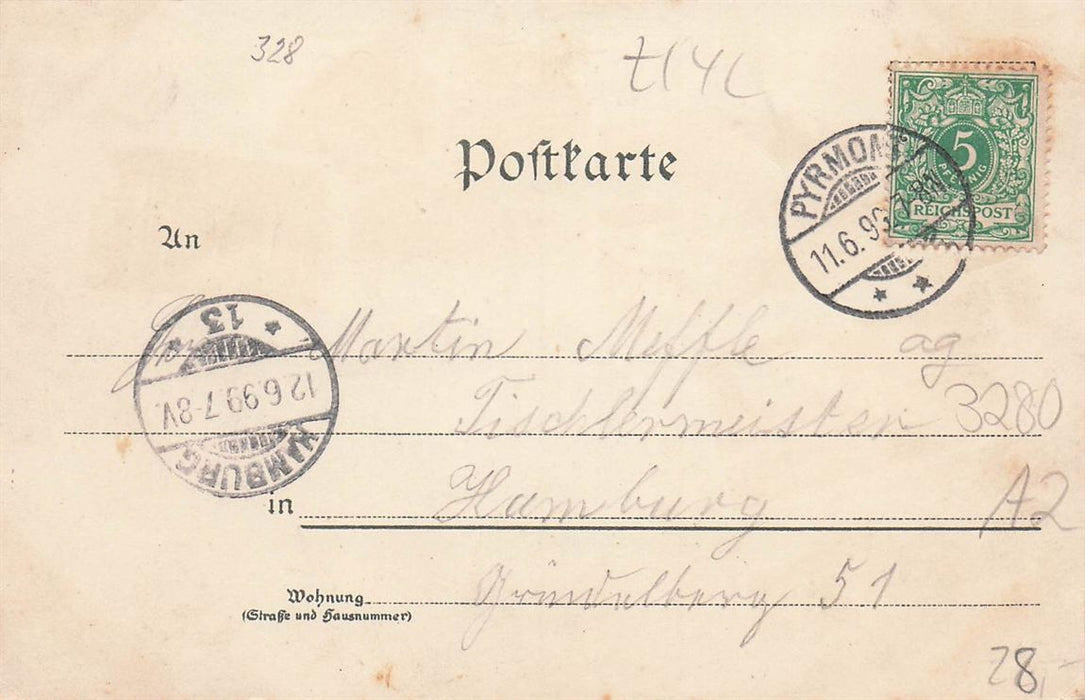 328
Postkarte
5
PFENNIG
REICHSPOST
PYRMONT
11.6.99 7-8N
An
13
12.6.99 7-8V.
HAMBURG
Martin
Tischlermeister
3280
in Hamburg
A2
Wohnung Grindelberg 51
(Straße und Hausnummer)
28,-